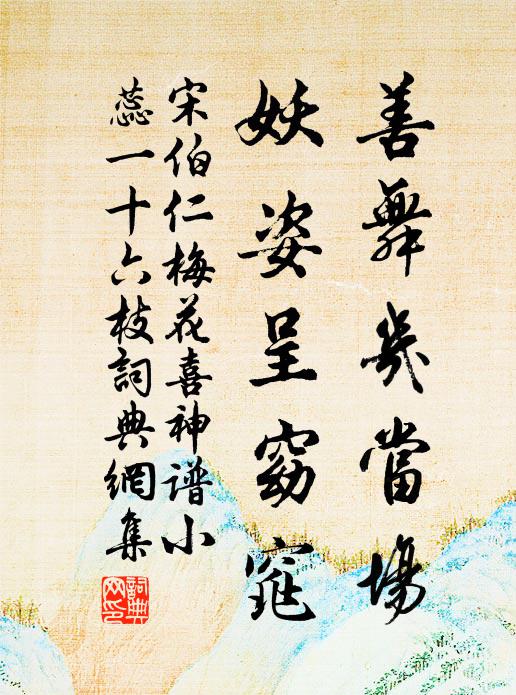 善舞幾當場
妖姿呈窈窕
宋伯仁梅花喜神谱小
蕊一十六枝詞典網集
詞典
网印